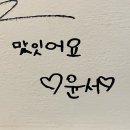 맛있어요
♡윤서♡